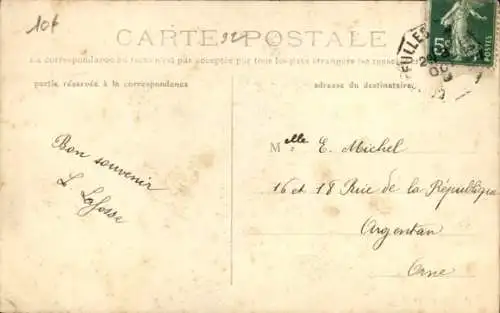 10f
CARTE POSTALE
La correspondance au recto n'est pas acceptée par tous les pays étrangers (se renseigner
partie réservée à la correspondance
adresse du destinataire
5c
POSTES
Bon souvenir
L Lafosse
Melle E. Michel
16 et 18 Rue de la République
Argentan
Orne